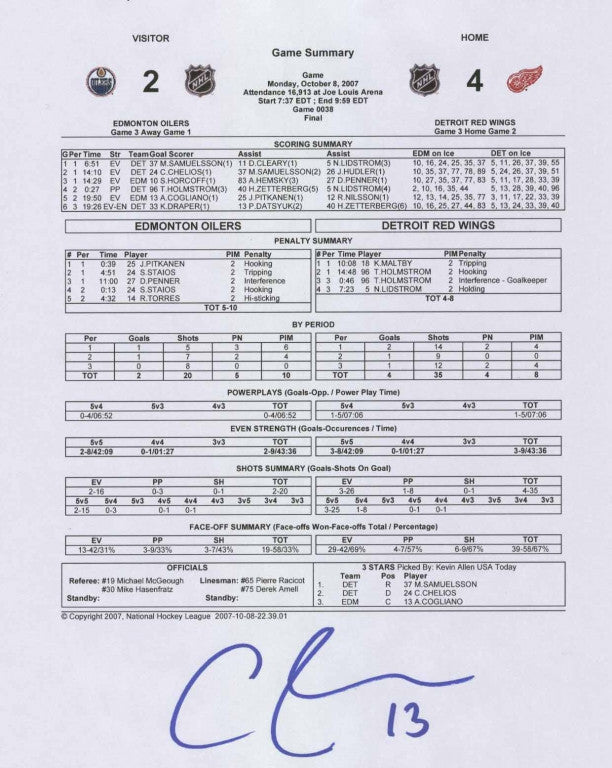 VISITOR HOME
Game Summary
2 NHL NHL 4
Game
Monday, October 8, 2007
Attendance 16,913 at Joe Louis Arena
Start 7:37 EDT ; End 9:59 EDT
Game 0038
Final
EDMONTON OILERS DETROIT RED WINGS
Game 3 Away Game 1 Game 3 Home Game 2
SCORING SUMMARY
G Per Time Str Team Goal Scorer Assist Assist EDM on Ice DET on Ice
1 1 6:51 EV DET 37 M.SAMUELSSON(1) 11 D.CLEARY(1) 5 N.LIDSTROM(3) 10, 16, 24, 25, 35, 37 5, 11, 26, 37, 39, 55
2 1 14:10 EV DET 24 C.CHELIOS(1) 37 M.SAMUELSSON(2) 26 J.HUDLER(1) 10, 35, 37, 77, 78, 89 5, 24, 26, 37, 39, 51
3 1 14:29 EV EDM 10 S.HORCOFF(1) 83 A.HEMSKY(3) 27 D.PENNER(1) 10, 27, 35, 37, 77, 83 5, 11, 17, 28, 33, 39
4 2 0:27 PP DET 96 T.HOLMSTROM(3) 40 H.ZETTERBERG(5) 5 N.LIDSTROM(4) 2, 10, 16, 35, 44 5, 13, 28, 39, 40, 96
5 2 19:50 EV EDM 13 A.COGLIANO(1) 25 J.PITKANEN(1) 12 R.NILSSON(1) 12, 13, 14, 25, 35, 77 3, 11, 17, 22, 33, 39
6 3 19:26 EV-EN DET 33 K.DRAPER(1) 13 P.DATSYUK(2) 40 H.ZETTERBERG(6) 10, 16, 25, 27, 44, 83 5, 13, 24, 33, 39, 40
EDMONTON OILERS DETROIT RED WINGS
PENALTY SUMMARY
# Per Time Player PIM Penalty # Per Time Player PIM Penalty
1 1 0:39 25 J.PITKANEN 2 Hooking 1 1 10:08 18 K.MALTBY 2 Tripping
2 1 4:51 24 S.STAIOS 2 Tripping 2 1 14:48 96 T.HOLMSTROM 2 Hooking
3 1 11:00 27 D.PENNER 2 Interference 3 3 0:46 96 T.HOLMSTROM 2 Interference - Goalkeeper
4 2 0:13 24 S.STAIOS 2 Hooking 4 3 7:23 5 N.LIDSTROM 2 Holding
5 2 4:32 14 R.TORRES 2 Hi-sticking TOT 4-8
TOT 5-10
BY PERIOD
Per Goals Shots PN PIM Per Goals Shots PN PIM
1 1 5 3 6 1 2 14 2 4
2 1 7 2 4 2 1 9 0 0
3 0 8 0 0 3 1 12 2 4
TOT 2 20 5 10 TOT 4 35 4 8
POWERPLAYS (Goals-Opp. / Power Play Time)
5v4 5v3 4v3 TOT 5v4 5v3 4v3 TOT
0-4/06:52 0-4/06:52 1-5/07:06 1-5/07:06
EVEN STRENGTH (Goals-Occurences / Time)
5v5 4v4 3v3 TOT 5v5 4v4 3v3 TOT
2-8/42:09 0-1/01:27 2-9/43:36 3-8/42:09 0-1/01:27 3-9/43:36
SHOTS SUMMARY (Goals-Shots On Goal)
EV PP SH TOT EV PP SH TOT
2-16 0-3 0-1 2-20 3-26 1-8 0-1 4-35
5v5 5v4 5v3 4v5 4v4 4v3 3v5 3v4 3v3 5v5 5v4 5v3 4v5 4v4 4v3 3v5 3v4 3v3
2-15 0-3 0-1 0-1 3-25 1-8 0-1 0-1
FACE-OFF SUMMARY (Face-offs Won-Face-offs Total / Percentage)
EV PP SH TOT EV PP SH TOT
13-42/31% 3-9/33% 3-7/43% 19-58/33% 29-42/69% 4-7/57% 6-9/67% 39-58/67%
OFFICIALS 3 STARS Picked By: Kevin Allen USA Today
Team Pos Player
Referee: #19 Michael McGeough Linesman: #65 Pierre Racicot 1. DET R 37 M.SAMUELSSON
#30 Mike Hasenfratz #75 Derek Amell 2. DET D 24 C.CHELIOS
Standby: Standby: 3. EDM C 13 A.COGLIANO
© Copyright 2007, National Hockey League 2007-10-08-22.39.01
13